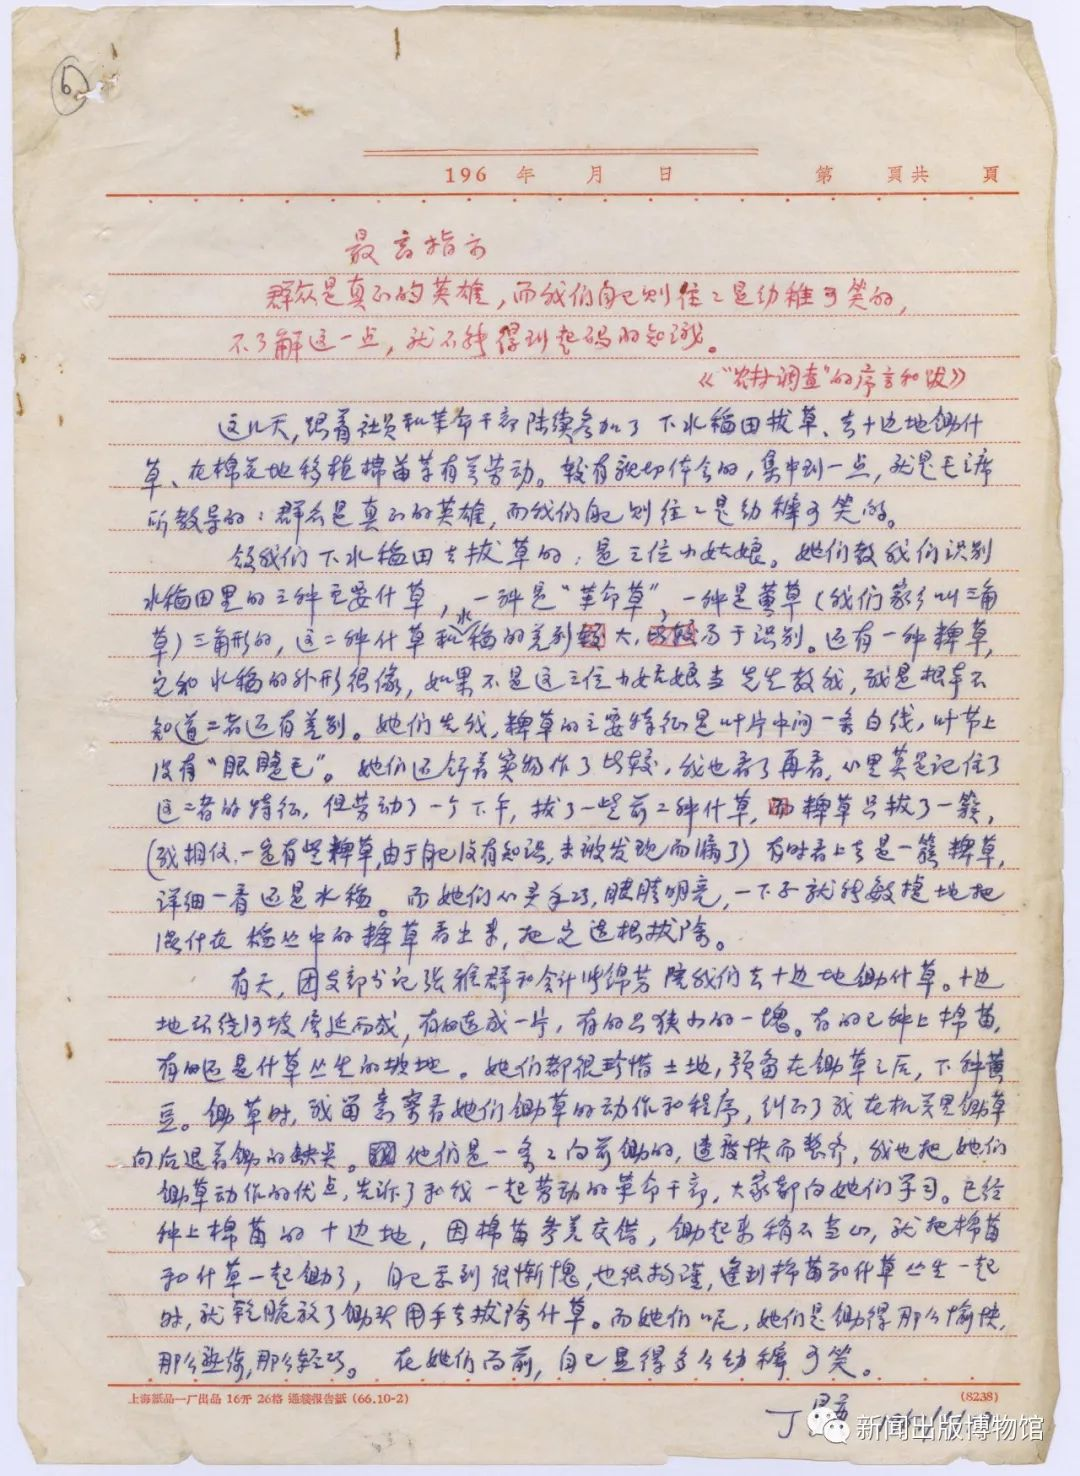 6
196 年 月 日 第 頁共 頁
最高指示
群众是真正的英雄，而我们自己则往々是幼稚可笑的，
不了解这一点，就不能得到起码的知识。
《“农村调查”的序言和跋》
这几天，跟着社员和革命干部陆续参加了下水稻田拔草、去十边地锄什
草、在棉花地移植棉苗等有关劳动。较有亲切体会的，集中到一点，就是毛主席
所教导的：群众是真正的英雄，而我们自己则往々是幼稚可笑的。
领我们下水稻田去拔草的：是三位小姑娘。她们教我们识别
水稻田里的三种主要什草，一种是“革命草”，一种是黄草（我们家乡叫三角
草）三角形的，这二种什草和水稻的差别较大，易于识别。还有一种稗草，
它和水稻的外形很像，如果不是这三位小姑娘当先生教我，我是根本不
知道二者还有差别。她们告我，稗草的主要特征是叶片中间一条白线，叶节上
没有“眼睫毛”。她们还拿着实物作了比较，我也看了再看，心里算是记住了
这二者的特征，但劳动了一个下午，拔了一些前二种什草，而稗草只拔了一簇，
（我相信，一定有些稗草，由于自己没有知识，未被发现而漏了）有时看上去是一簇稗草，
详细一看还是水稻。而她们心灵手巧，眼睛明亮，一下子就能敏捷地把
混什在稻丛中的稗草看出来，把它连根拔除。
有天，团支部书记张雅群和会计 锦芳陪我们去十边地锄什草。十边
地环绕河坡蔓延而成，有的连成一片，有的只狭小的一块。有的已种上棉苗，
有的还是什草丛生的坡地。她们都很珍惜土地，预备在锄草之后，下种黄
豆。锄草时，我留意察看她们锄草的动作和程序，纠正了我在机关里锄草
向后退着锄的缺点。他们是一条々向前锄的，速度快而整齐，我也把她们
锄草动作的优点，告诉了和我一起劳动的革命干部，大家都向她们学习。已经
种上棉苗的十边地，因棉苗参差交错，锄起来稍不当心，就把棉苗
和什草一起锄了，自己感到很惭愧，也很拘谨，逢到棉苗和什草丛生一起
时，就乾脆放了锄头用手去拔除什草。而她们呢，她们是锄得那么愉快，
那么熟练，那么轻巧。在她们面前，自己显得多么幼稚可笑。
上海紙品一厂出品 16开 26格 通裝报告紙 (66.10-2) (8238)
丁
新闻出版博物馆